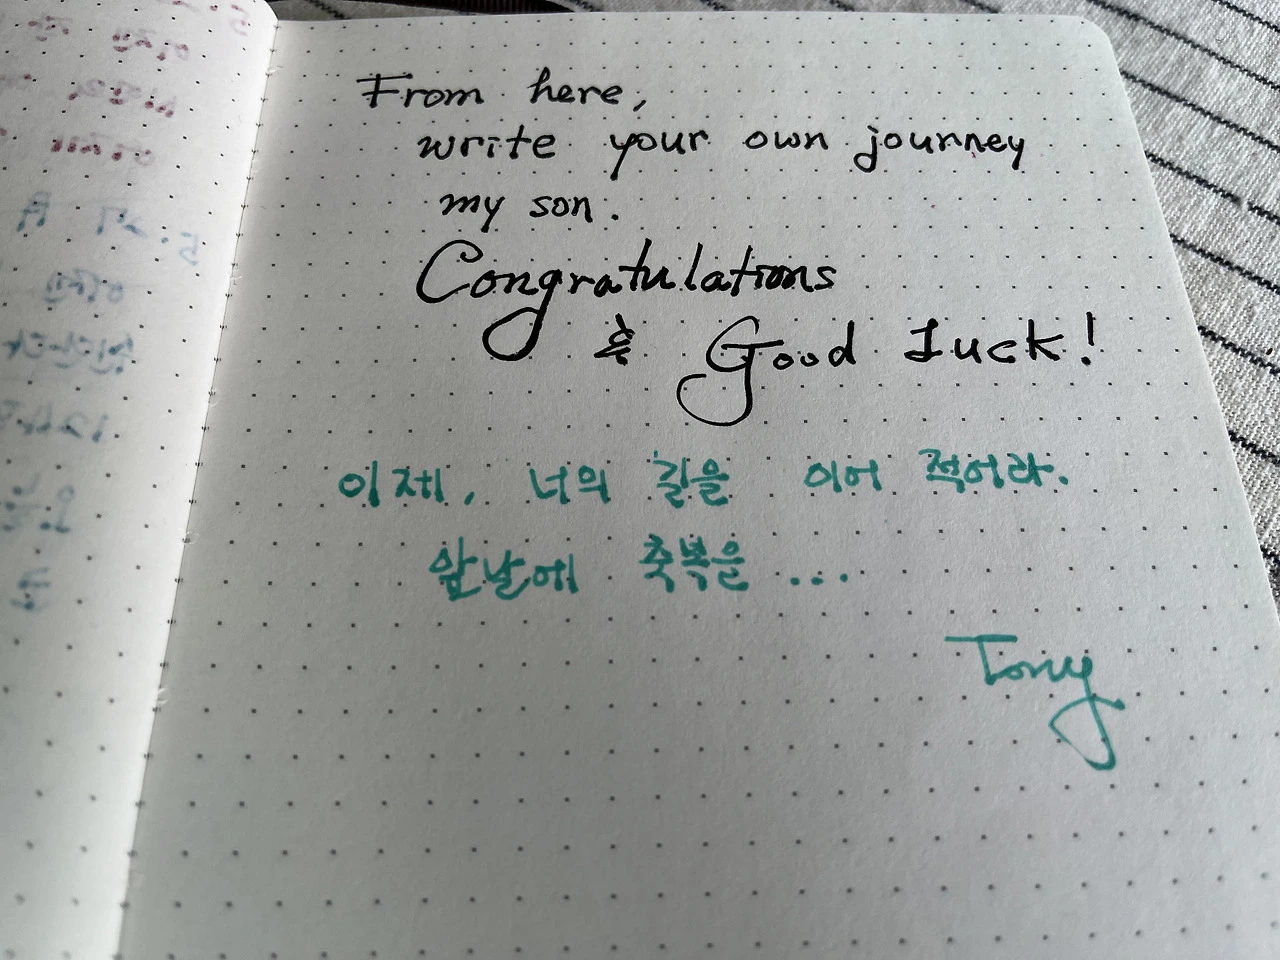 From here,
write your own journey
my son.
Congratulations
& Good Luck!
이제, 너의 길을 이어 적어라.
앞날에 축복을 ...
Tony